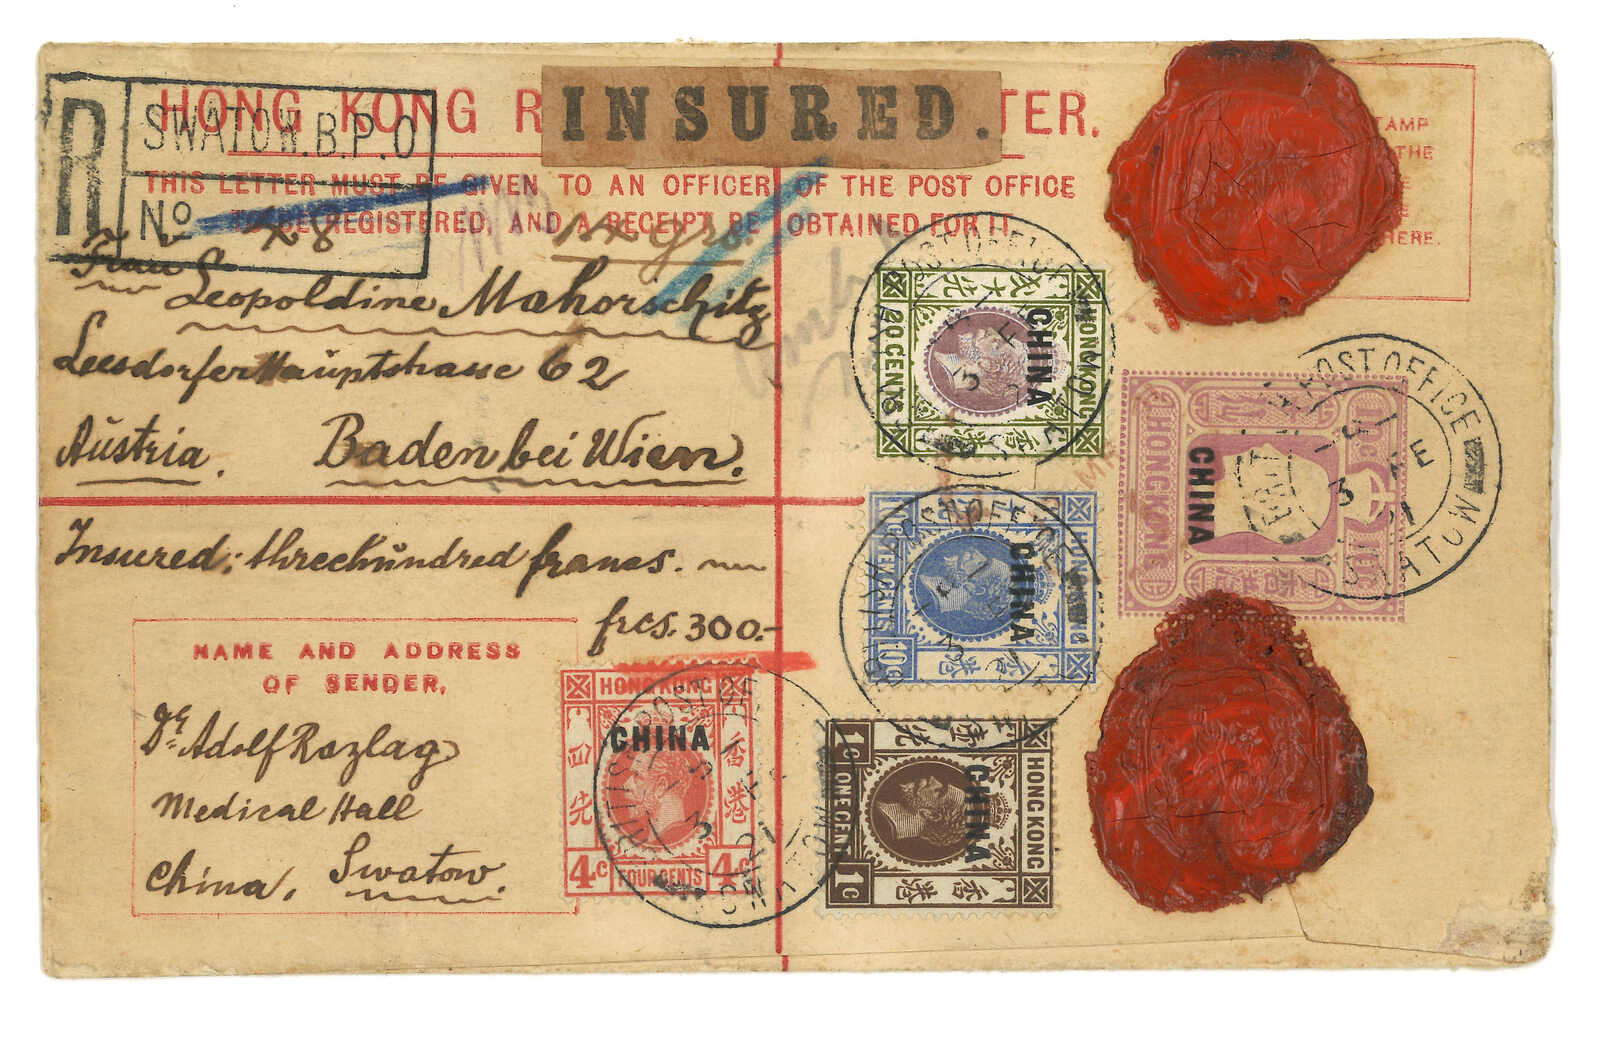 HONG KONG R
INSURED.
TER.
R
SWATOW.B.P.O
No
48
THIS LETTER MUST BE GIVEN TO AN OFFICER OF THE POST OFFICE
TO BE REGISTERED, AND A RECEIPT BE OBTAINED FOR IT.
TAMP
THE
HERE.
Frau Leopoldine Mahorschitz
Leesdorfer Hauptstrasse 62
Austria. Baden bei Wien.
Insured: threehundred francs.
frcs. 300.-
NAME AND ADDRESS
OF SENDER,
Dr Adolf Rozlag
Medical Hall
China, Swatow.
HONG KONG
CHINA
20 CENTS
HONG KONG
CHINA
10 CENTS
10c
HONG KONG
CHINA
香港
四先
4c
FOUR CENTS
4c
HONG KONG
CHINA
1c
ONE CENT
1c
香港
壹先
HONG KONG
CHINA
10c
BRITISH POST OFFICE
SWATOW
3 FE
21